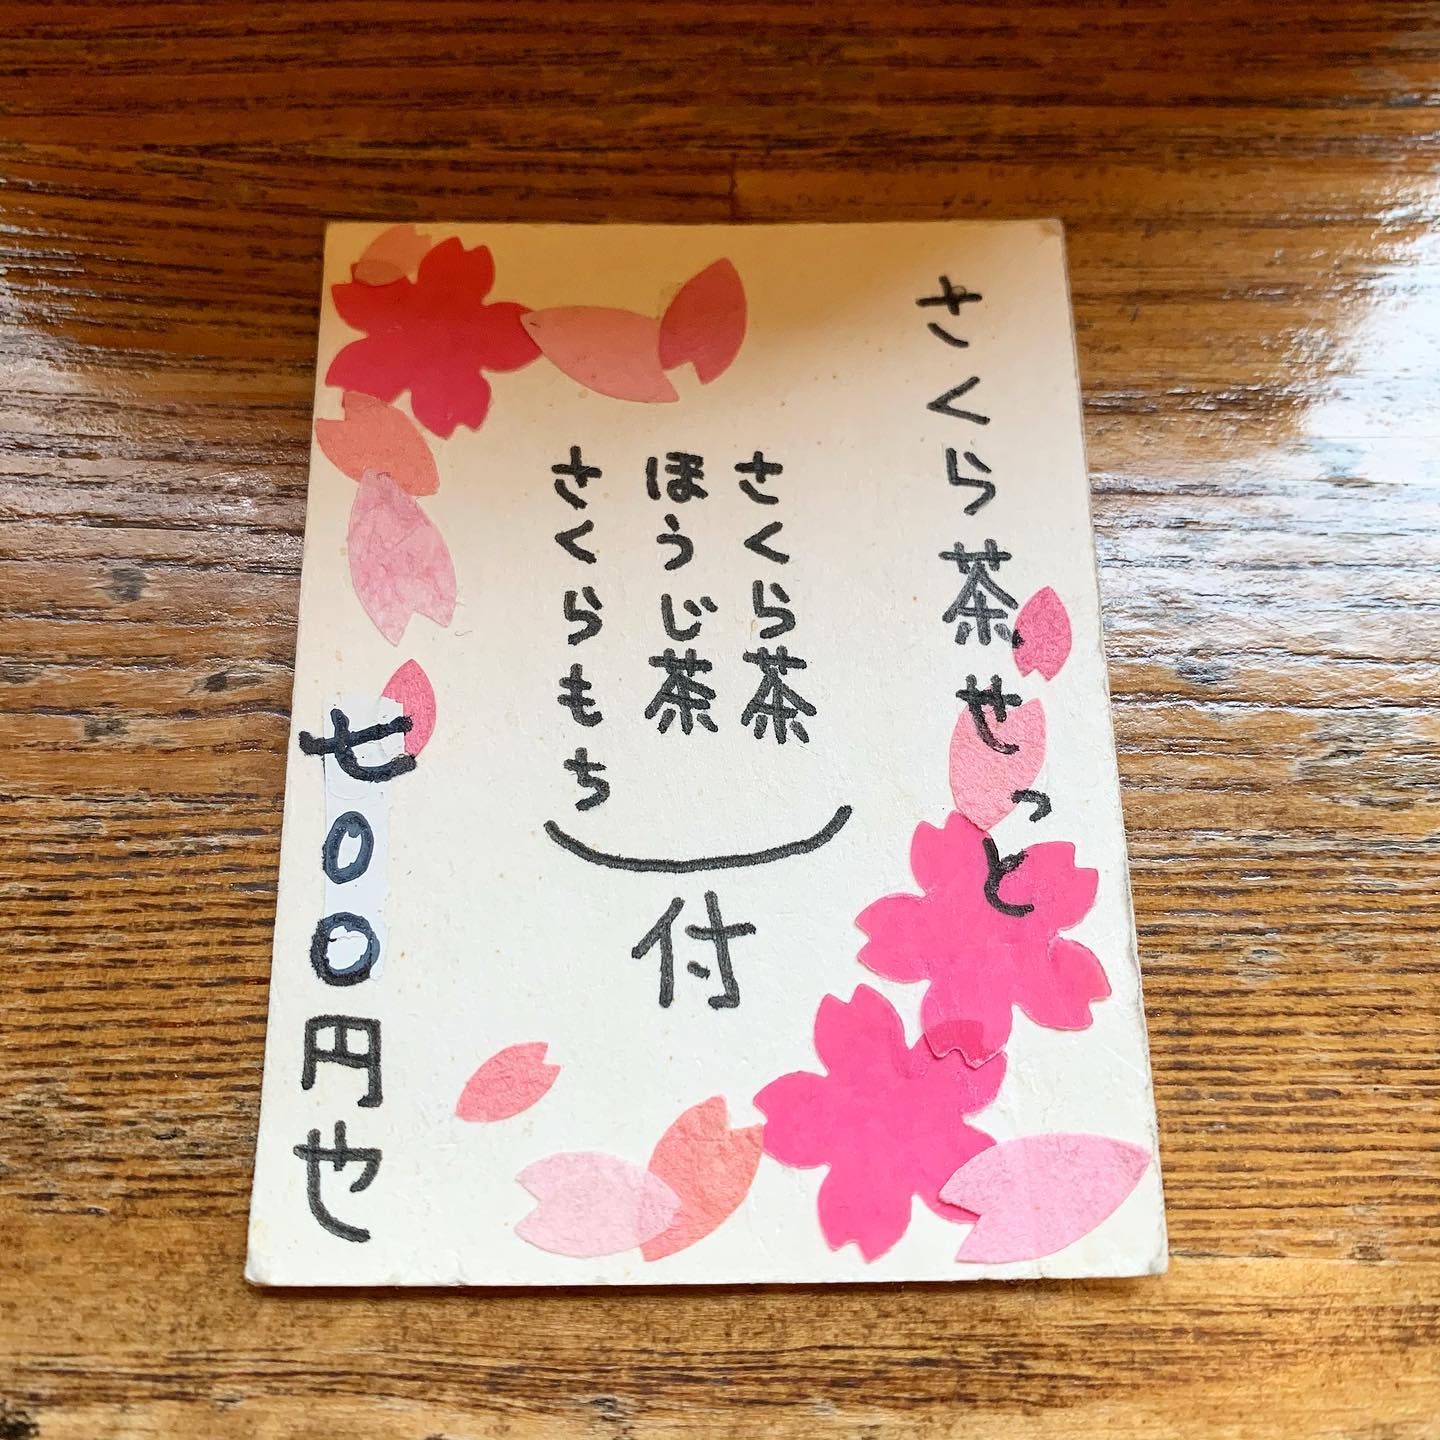 さくら茶せっと
さくら茶
ほうじ茶
さくらもち
付
七〇〇円也